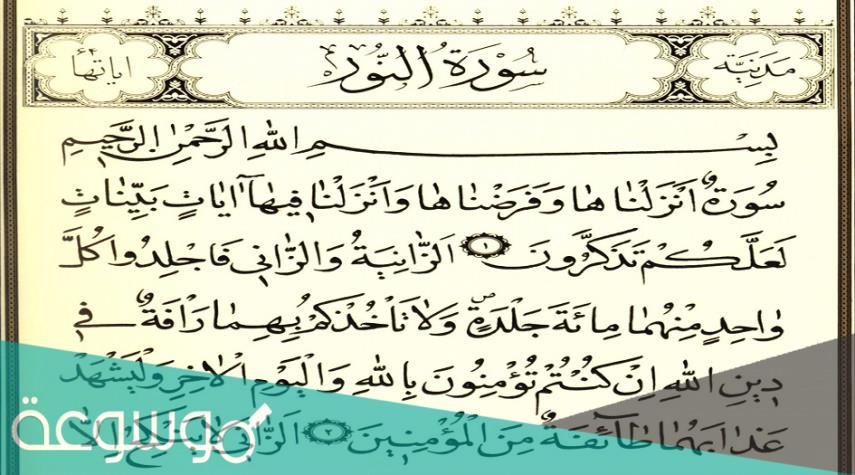 مَدَنِيَّة
سُورَةُ النُّورِ
اياتها ٦٤
بِسْمِ اللهِ الرَّحْمٰنِ الرَّحٖيمِ
سُورَةٌ اَنْزَلْنَاهَا وَفَرَضْنَاهَا وَاَنْزَلْنَا فٖيهَٓا اٰيَاتٍ بَيِّنَاتٍ
لَعَلَّكُمْ تَذَكَّرُونَ ١ اَلزَّانِيَةُ وَالزَّانٖي فَاجْلِدُوا كُلَّ
وَاحِدٍ مِنْهُمَا مِائَةَ جَلْدَةٍ وَلَا تَأْخُذْكُمْ بِهِمَا رَاْفَةٌ فٖي
دٖينِ اللهِ اِنْ كُنْتُمْ تُؤْمِنُونَ بِاللهِ وَالْيَوْمِ الْاٰخِرِ وَلْيَشْهَدْ
عَذَابَهُمَا طَٓائِفَةٌ مِنَ الْمُؤْمِنٖينَ ٢ اَلزَّانٖي لَا يَنْكِحُ اِلَّا
موسوعة